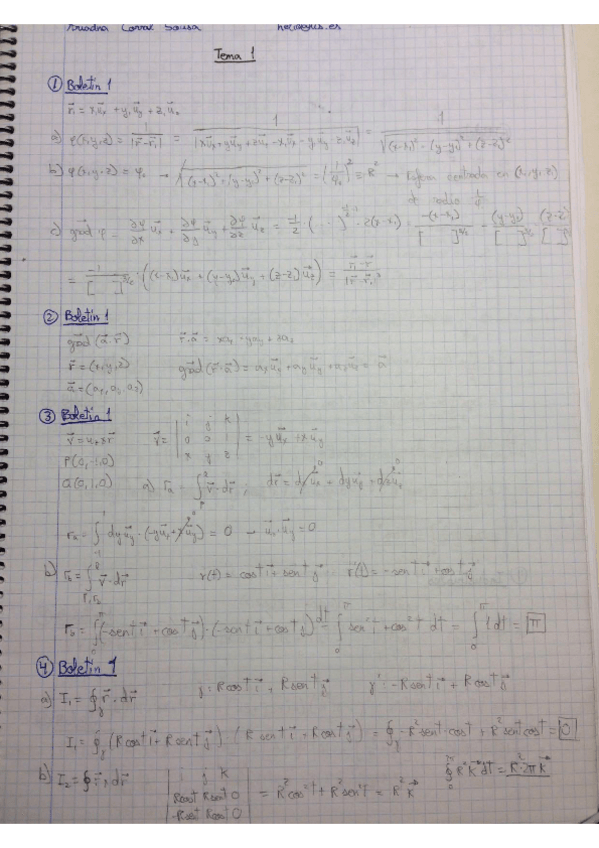 Ariadna Corral Sousa helio@us.es
Tema 1
① Boletín 1
r⃗₁ = x₁u⃗ₓ + y₁u⃗ᵧ + z₁u⃗_z
a) φ(x,y,z) = 1/|r⃗-r⃗₁| = 1/|xu⃗ₓ+yu⃗ᵧ+zu⃗_z-x₁u⃗ₓ-y₁u⃗ᵧ-z₁u⃗_z| = 1/√((x-x₁)²+(y-y₁)²+(z-z₁)²)
b) φ(x,y,z) = φ₀ → √((x-x₁)²+(y-y₁)²+(z-z₁)²) = (1/φ₀)² = R² → centrada en (x₁,y₁,z₁)
de radio
c) grad φ = ∂φ/∂x u⃗ₓ + ∂φ/∂y u⃗ᵧ + ∂φ/∂z u⃗_z = -1/2 · ( ... ) · 2(x-x₁) = -(x-x₁)/[ ]^3/2 - (y-y₁)/[ ]^3/2 (z-z₁)/[ ]
= -1/[ ]^3/2 · ((x-x₁)u⃗ₓ + (y-y₁)u⃗ᵧ + (z-z₁)u⃗_z) = (r⃗₁-r⃗)/|r⃗-r⃗₁|³
② Boletín 1
grad (a⃗·r⃗) r⃗·a⃗ = xaₓ + yaᵧ + za_z
r⃗ = (x,y,z) grad (r⃗·a⃗) = aₓu⃗ₓ + aᵧu⃗ᵧ + a_zu⃗_z = a⃗
a⃗ = (aₓ, aᵧ, a_z)
③ Boletín 1
v⃗ = u_z×r⃗ v⃗ = | i j k | 0 0 1 | x y z | = -yu⃗ₓ + xu⃗ᵧ
P(0,-1,0)
Q(0,1,0) a) Γa = ∫ v⃗·dr⃗ ; dr⃗ = dxu⃗ₓ + dyu⃗ᵧ + dzu⃗_z
Γa = ∫₋₁¹ dyu⃗ᵧ·(-yu⃗ₓ+xu⃗ᵧ) = 0 → u⃗ₓ·u⃗ᵧ = 0
b) Γb = ∫ v⃗·dr⃗ r(t) = cost i⃗ + sent j⃗ r'(t) = -sent i⃗ + cost j⃗
Γb = ∫₀^π (-sent i⃗ + cost j⃗)·(-sent i⃗ + cost j⃗) dt = ∫₀^π sen²t + cos²t dt = ∫₀^π 1 dt = π
④ Boletín 1
a) I₁ = ∮ᵧ r⃗·dr⃗ γ: Rcost i⃗ + Rsent j⃗ γ': -Rsent i⃗ + Rcost j⃗
I₁ = ∮ᵧ (Rcost i⃗ + Rsent j⃗)·(Rsent i⃗ + Rcost j⃗) = ∮ᵧ -R²sent·cost + R²sent cost = 0
b) I₂ = ∮ r⃗×dr⃗ | i j k | Rcost Rsent 0 | -Rsent Rcost 0 | = R²cos²t + R²sen²t = R²k⃗ ∮₀^2π R²k⃗ dt = R²·2πk⃗